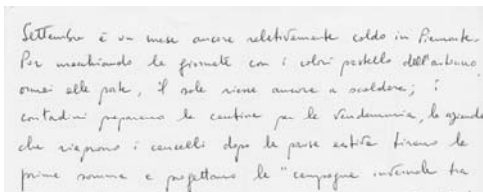 Settembre è un mese ancora relativamente caldo in Piemonte.
Pur macchiando le giornate con i colori pastello dell'autunno,
ormai alle porte, il sole riesce ancora a scaldare; i
contadini preparano le cantine per la vendemmia, le aziende
che riaprono i cancelli dopo la pausa estiva tirano le
prime somme e progettano le "campagne invernali tra